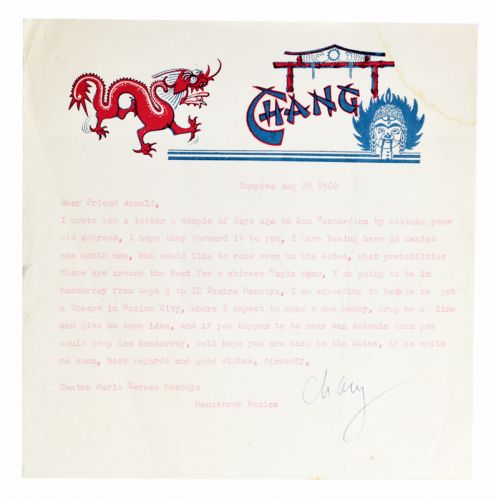 CHANG
Tampico Aug 28 1960
Dear Friend Arnold,
I wrote you a letter a couple of days ago to San Bernardino by mistake your
old address, I hope they forward it to you, I have beeing here in Mexico
one month now, but would like to come over to the Sates, what probabilties
there are around the West for a chinese Magic show, I am going to be in
Monterrey from Sept 3 to 12 Teatro Montoya, I am expecting to beable to get
a Theare in Mexico City, where I expect to make s ome money, drop me a line
and give me some idea, and if you happen to be near San Antonio then you
could drop ino Monterrey, well hope you are back in the Sates, if so write
me soon, best regards and good wishes, sincerly,
Teatro Maria Teresa Montoya
Monterrey Mexico
Chang